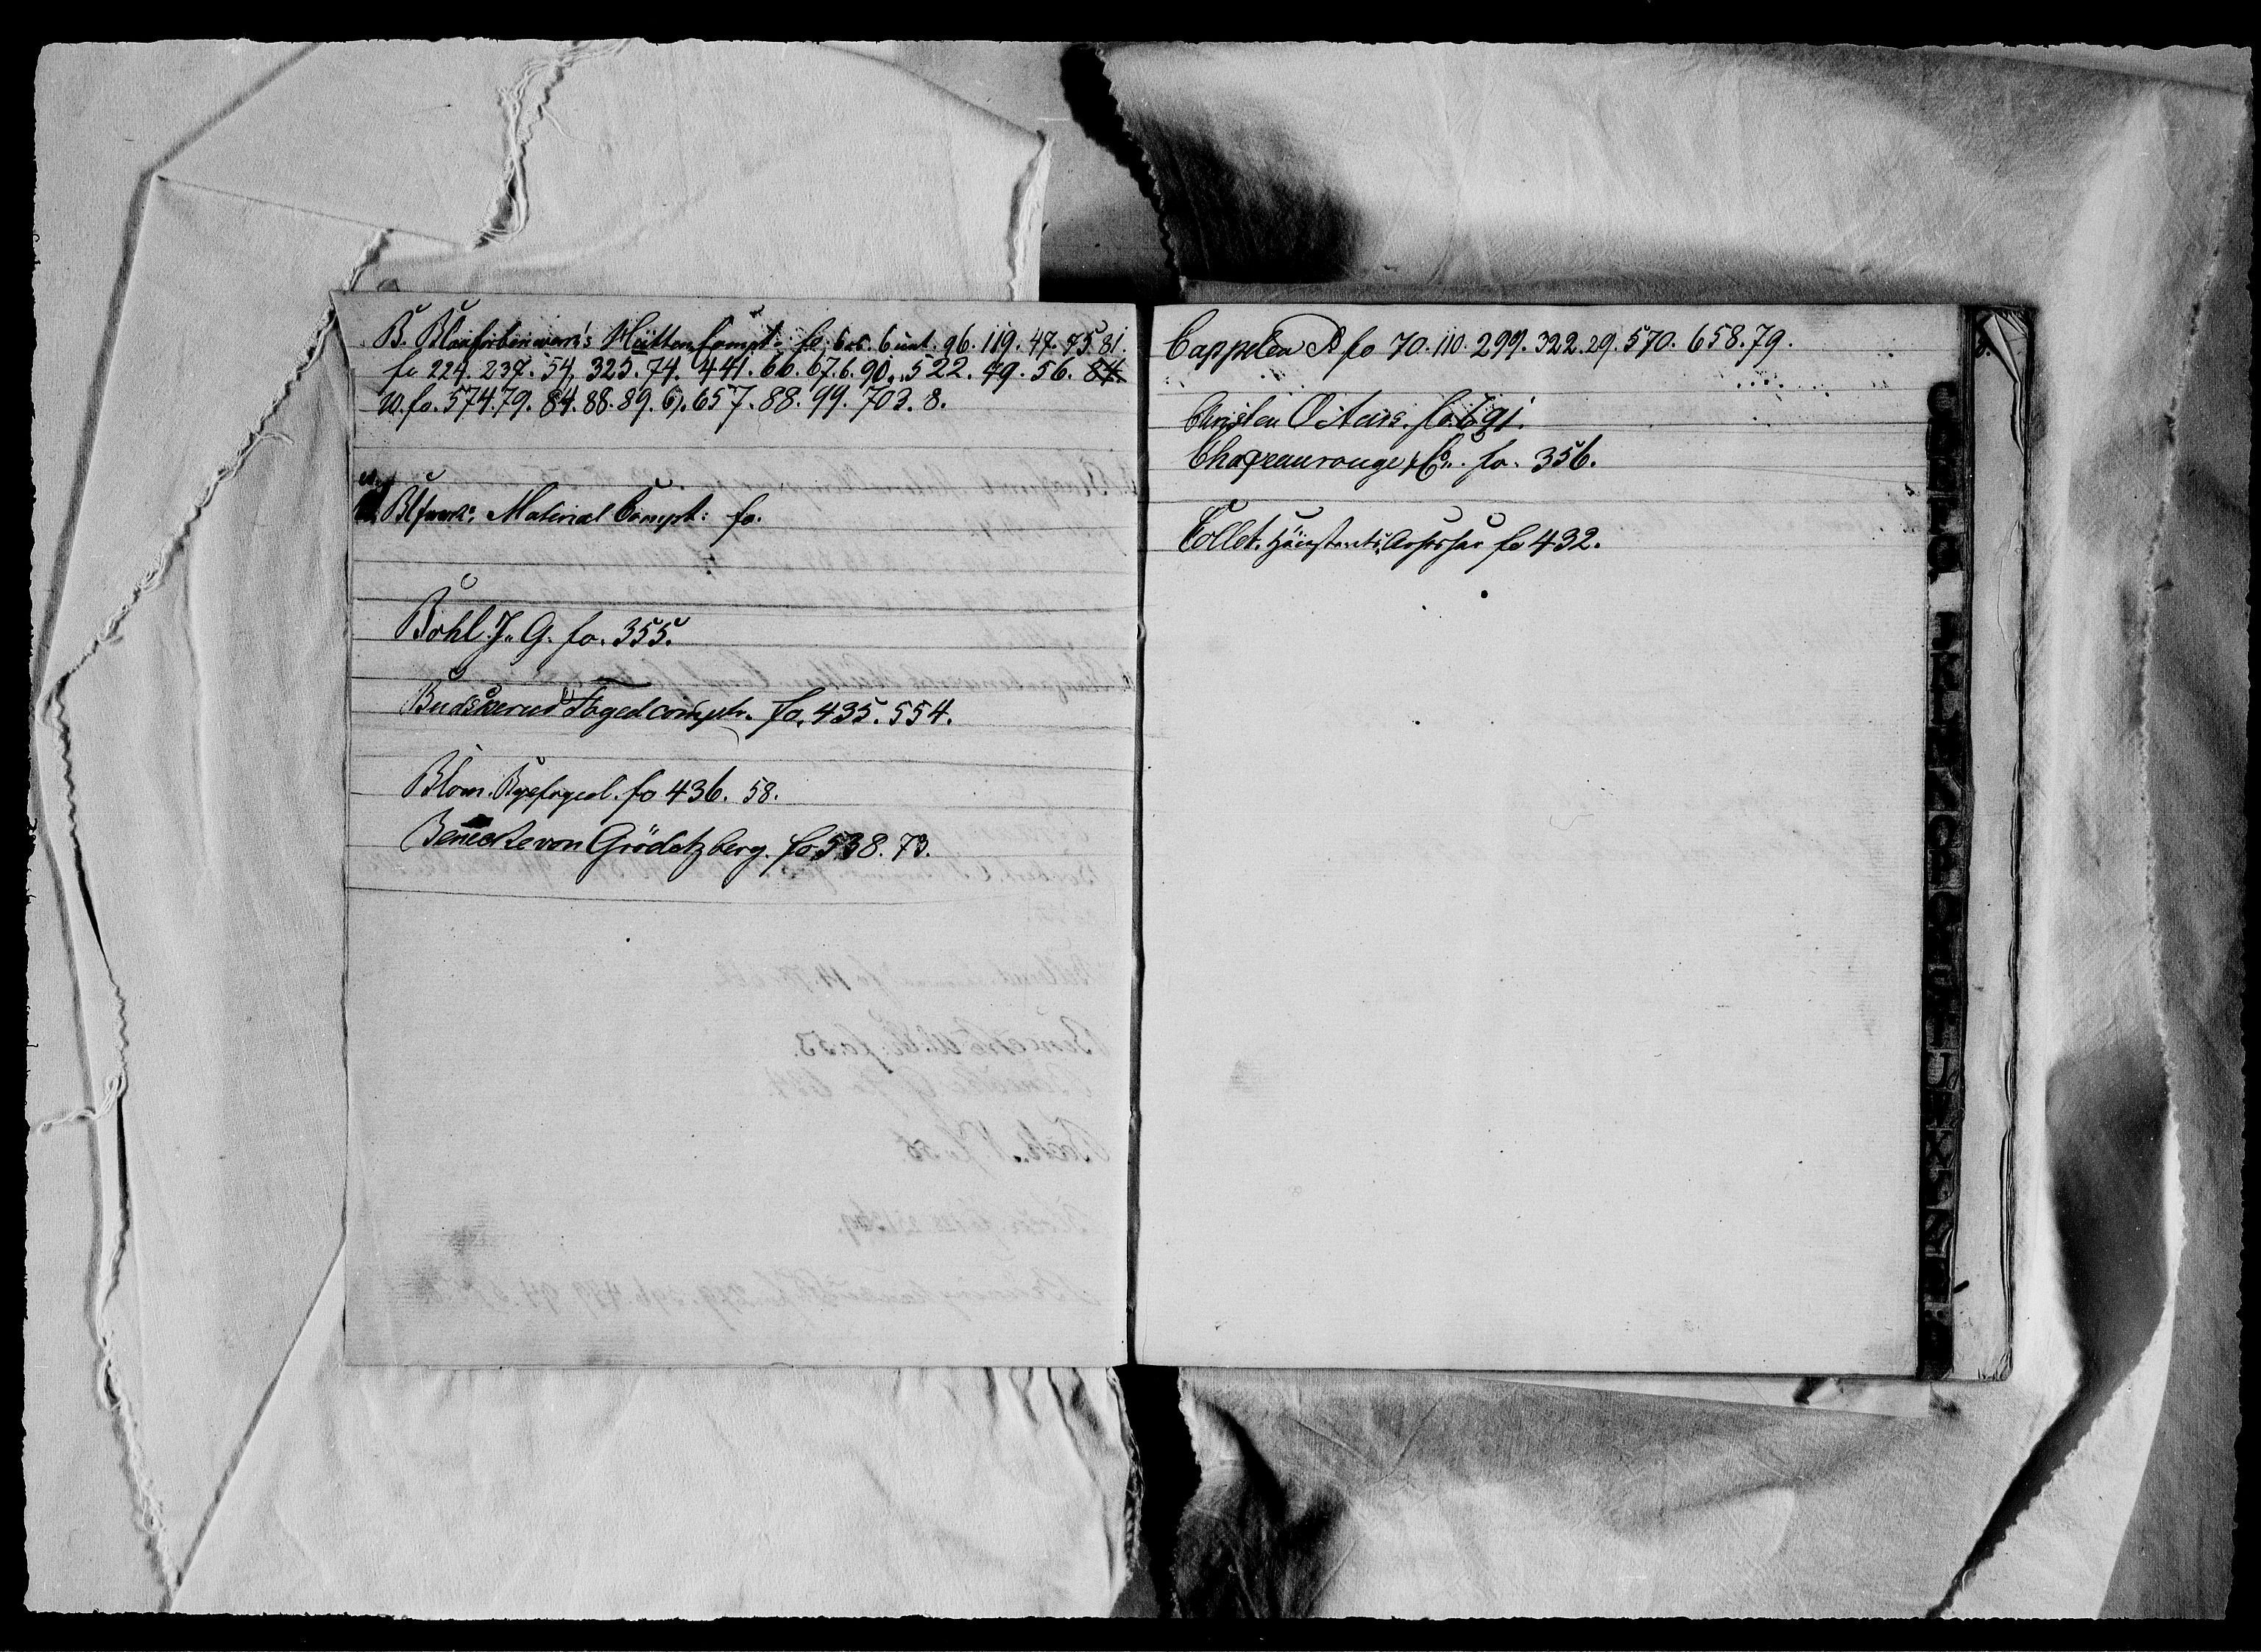 B. Blaafarbenwerk's Hütten Compt. fo. 6 unt. 96. 119. 47. 75. 81.
fo 224. 237. 54. 325. 74. 441. 66. 67. 6. 90. 522. 49. 56. 84.
fo. 574. 79. 84. 88. 89. 657. 88. 99. 703. 8.
Blfwerk's Material Compt: fo.
Bohl. J. G. fo. 355.
Budskerud Fogedcompt. fo. 435. 554.
Blom. Byefoged. fo 436. 58.
Benecke von Gröditzberg. fo 538. 73.
Cappelen fo 70. 110. 299. 322. 29. 570. 658. 79.
Christen fo. 691.
Chapeaurouge & Co. fo. 356.
Collet. Assessor fo 432.